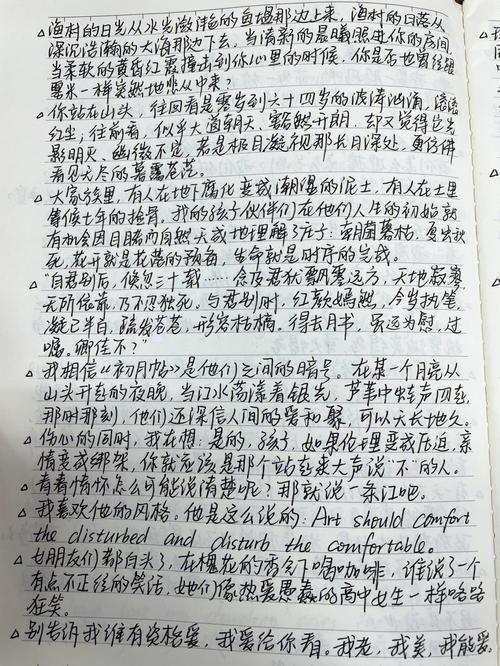 △渔村的日光从水光潋滟的鱼塭那边上来，渔村的日落从
深沉浩瀚的大海那边下去，当清新的晨曦照进你的房间，
当柔软的黄昏红霞撞击到你心里的时候，你是否也曾经跟
黑米一样突然地悲从中来？
△你站在山头，往回看是零岁到六十四岁的波涛汹涌，滚滚
红尘；往前看，似乎大道朝天、豁然开朗，却又觉得它光
影明灭、幽微不定，若是极目凝视那长月深处，更仿佛
看见无尽的莫莫苍茫。
△大家族里，有人在地下腐化变成潮湿的泥土，有人在土里
等候七年的捡骨。我的孩子伙伴们在他们人生的初始就
有机会因目睹而自然天成地理解了庄子：朝菌暮枯，夏虫秋
死，花开就是花落的预备，生命就是时序的完成。
△"自君别后，倏忽三十载……念及君独飘零远方，天地寂寥，
无所依靠，乃不忍独死。与君别时，红颜嫣然，今岁执笔，
凝已半白，骆发苍苍，形容枯槁。得去月书，虽远为慰，过
嘱。卿佳不？"
△我相信《初月帖》是他们之间的暗号。在某一个月亮从
山头升起的夜晚，当江水荡漾着银光，芦苇中虫声四起，
那时那刻，他们还深信人间的爱和聚，可以天长地久。
△伤心的同时，我在想：是的，孩子，如果伦理变成压迫，亲
情变成绑架，你就应该是那个站起来大声说"不"的人。
△看着情怀怎么可能说清楚呢？那就说一条江吧。
△我喜欢他的风格。他是这么说的：Art should comfort
the disturbed and disturb the comfortable。
△女朋友们都白头了，在槐花的香气下喝咖啡，谁说了一个
有点不正经的笑话，她们像热爱愚蠢的高中女生一样咯咯
狂笑。
△别告诉我谁有资格爱，我爱给你看。我老，我美，我能爱。